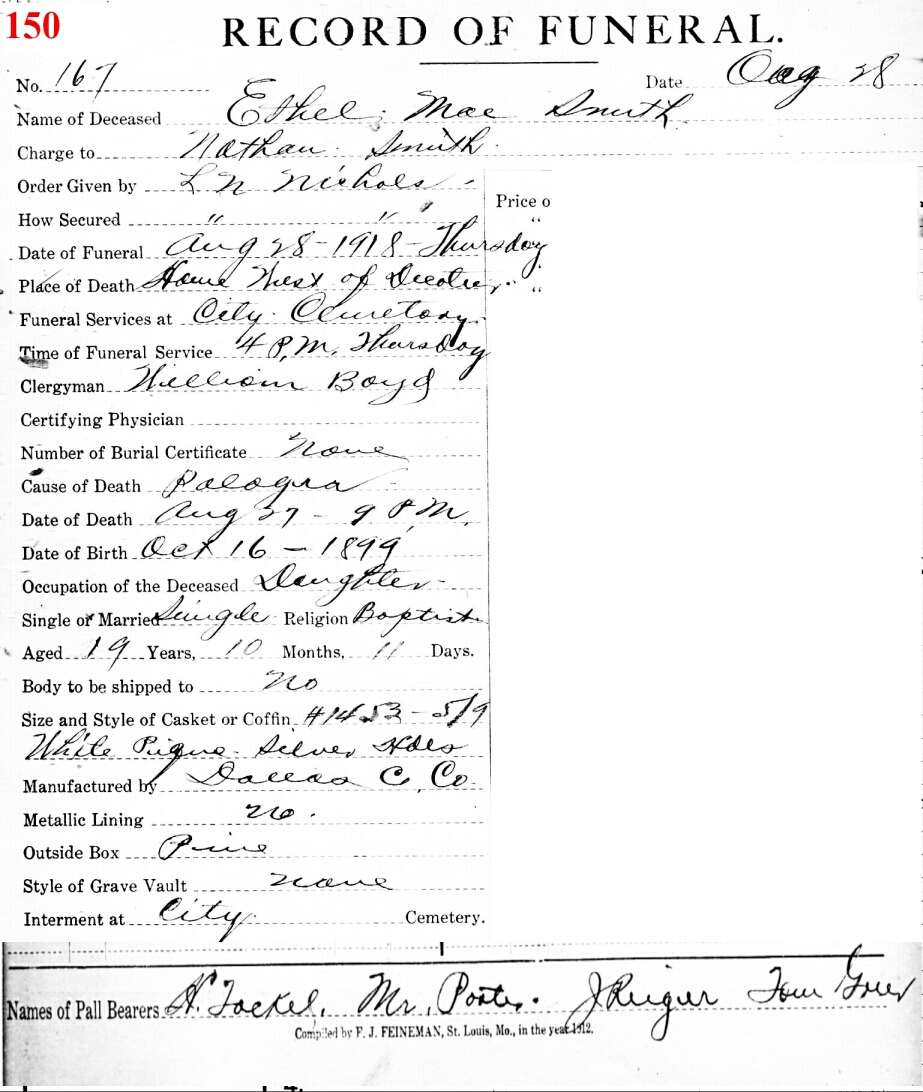 150
RECORD OF FUNERAL.
No. 167 Date Aug 28
Name of Deceased Ethel Mae Smith
Charge to Nathan Smith
Order Given by L N Nichols
Price o
How Secured " " "
Date of Funeral Aug 28-1918-Thursday
Place of Death Home West of Decatur "
Funeral Services at City Cemetary
Time of Funeral Service 4 P,M, Thursday
Clergyman William Boyd
Certifying Physician
Number of Burial Certificate None
Cause of Death Palagra
Date of Death Aug 27 - 9 P,M,
Date of Birth Oct 16 - 1899
Occupation of the Deceased Daughter
Single or Married Single Religion Baptist
Aged 19 Years, 10 Months, 11 Days.
Body to be shipped to No
Size and Style of Casket or Coffin #1453 - 5/9
White Silver Hdls
Manufactured by Dallas C, Co
Metallic Lining no.
Outside Box Pine
Style of Grave Vault None
Interment at City Cemetery.
Names of Pall Bearers Mr, Porter. Tom
Compiled by F. J. FEINEMAN, St. Louis, Mo., in the year 1912.